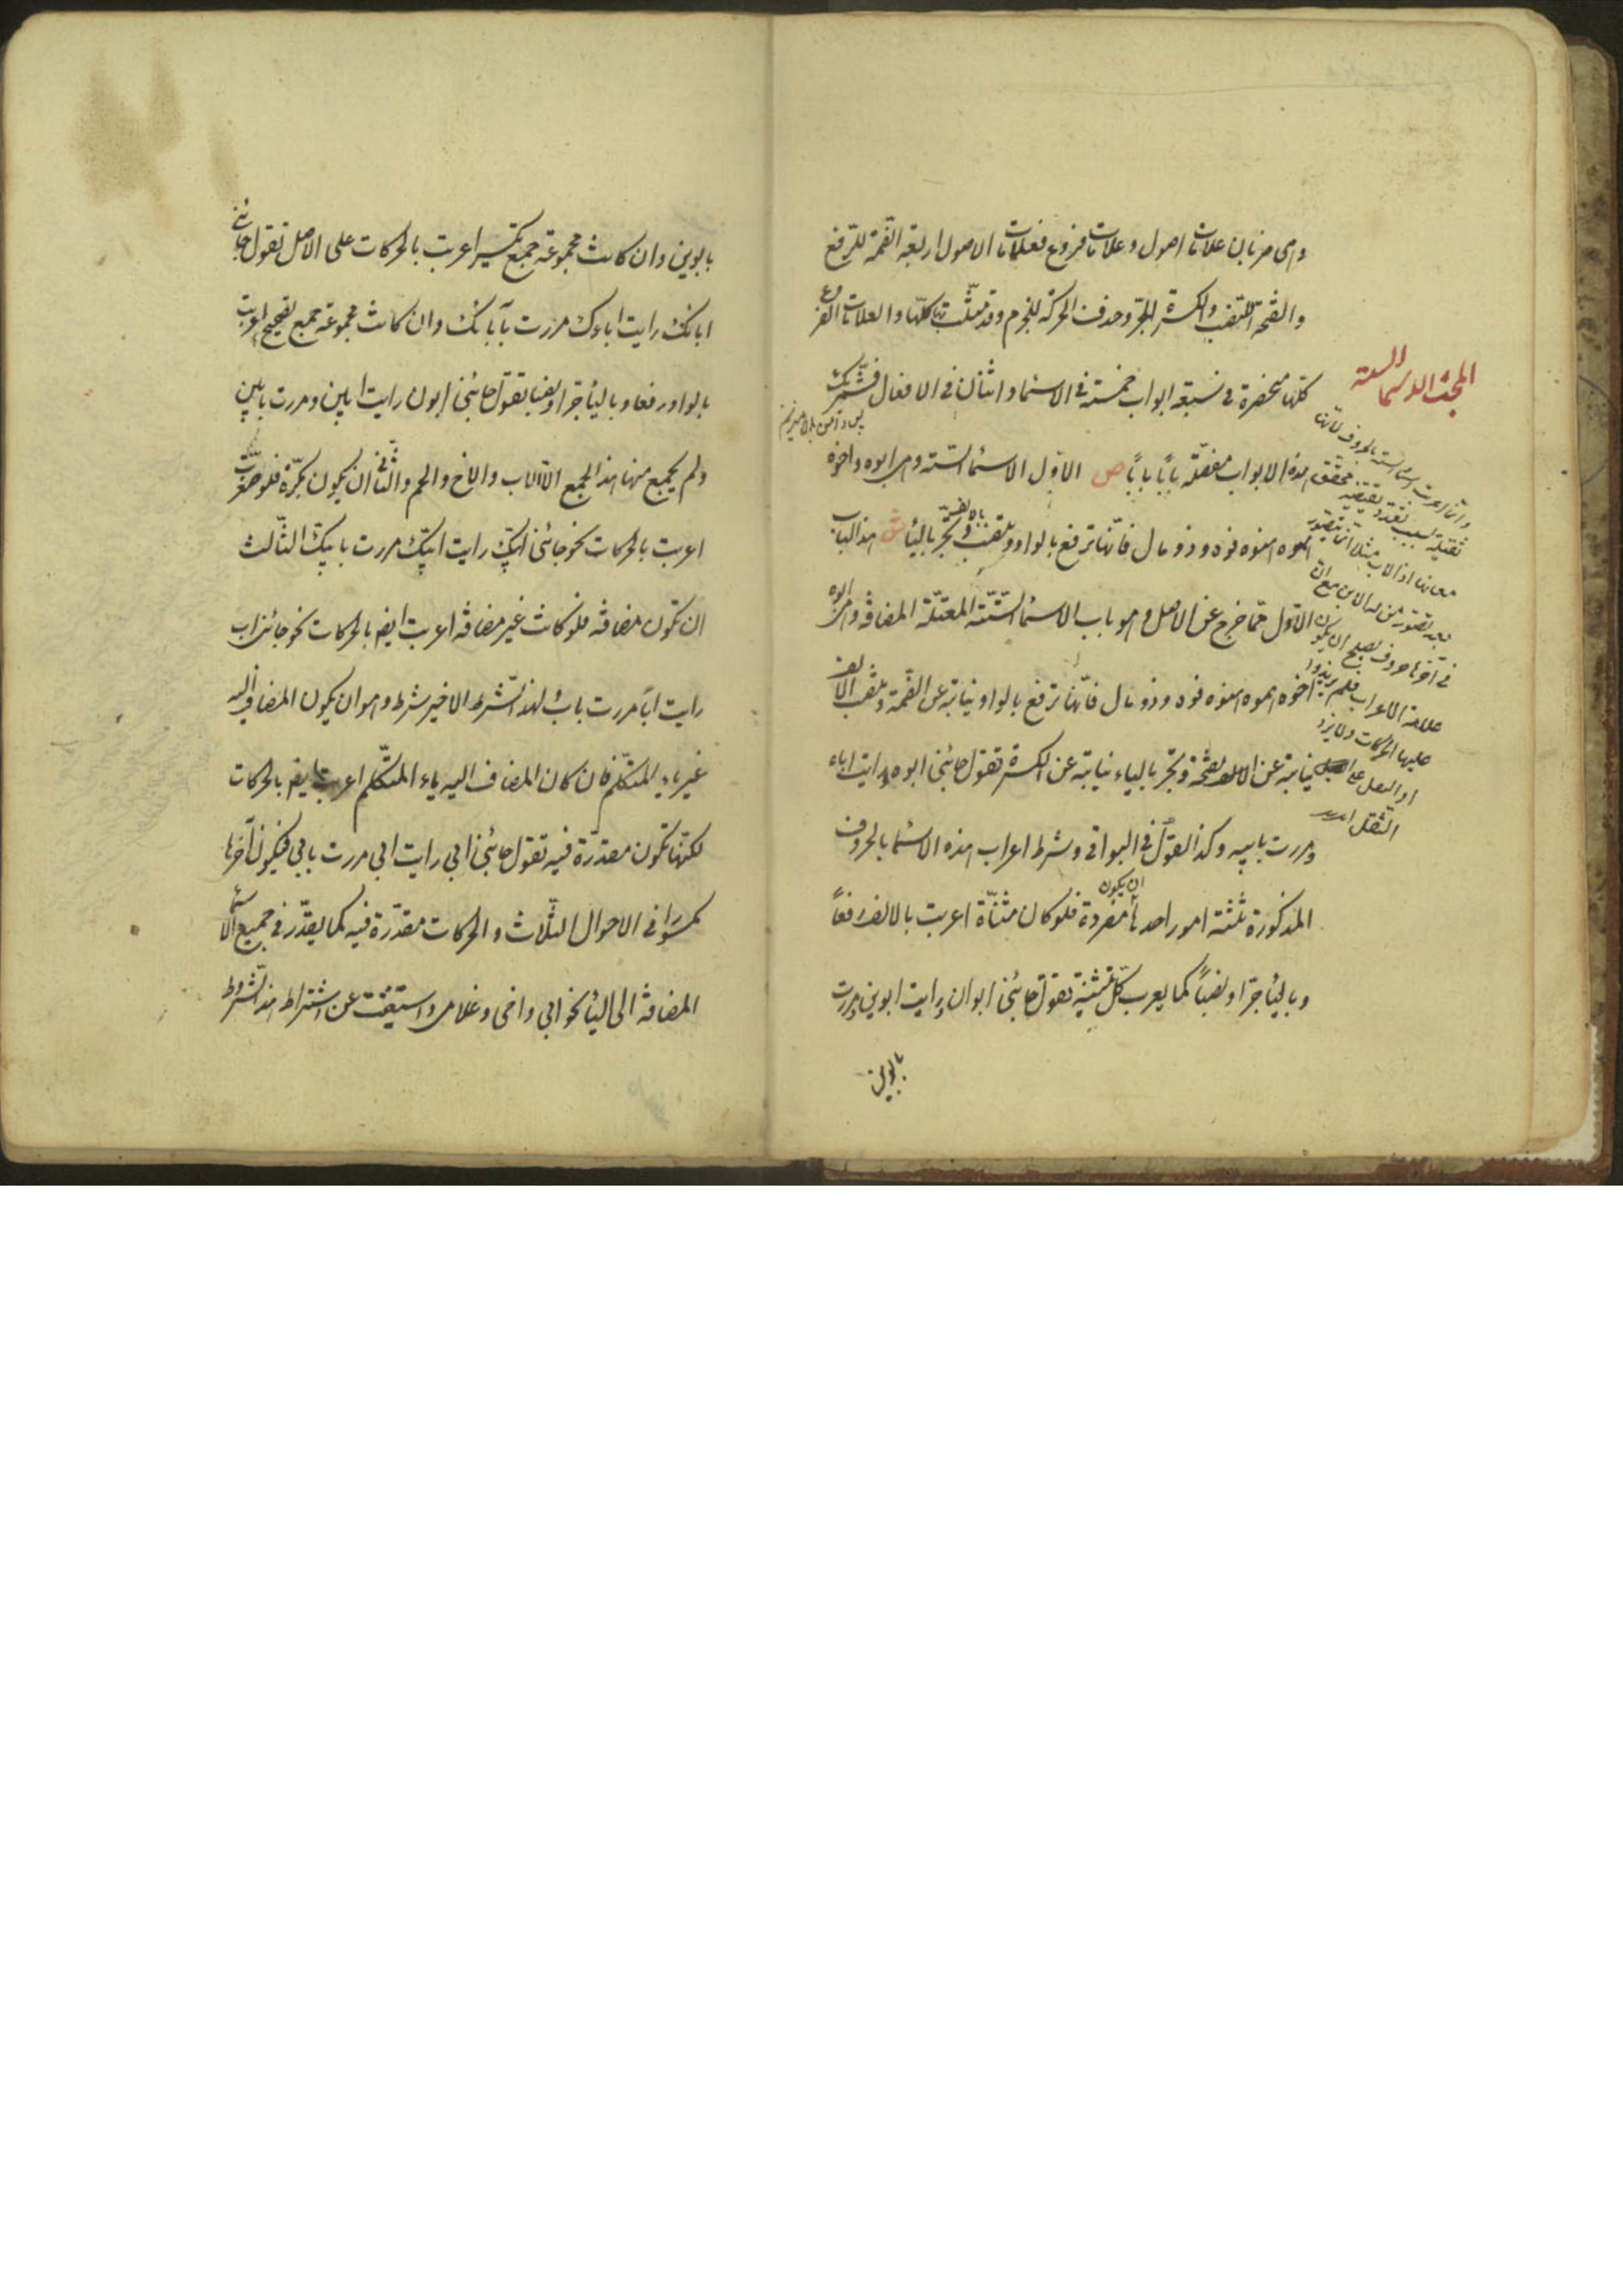 وهى ضربان علامات اصول وعلامات فروع فعلامات الاصول اربعة الضمة للرفع
والفتحة للنصب والكسرة للجر وحذف الحركة للجزم وقد مثلت بها كلها والعلامات الفروع
كلها منحصرة فى سبعة ابواب خمسة فى الاسماء واثنان فى الافعال
هذه الابواب مفصلة بابا بابا ص الاول الاسماء الستة وهى ابوه واخوه
حموه هنوه فوه وذو مال فانها ترفع بالواو وتنصب وتجر بالياء ش هذا الباب
الاول مما خرج عن الاصل وهو باب الاسماء الستة المعتلة المضافة وهى ابوه
اخوه حموه هنوه فوه وذو مال فانها ترفع بالواو نيابة عن الضمة وتنصب الالف
نيابة عن الفتحة وتجر بالياء نيابة عن الكسرة تقول جائنى ابوه ورايت اباه
ومررت بابيه وكذا القول فى البواقى وشرط اعراب هذه الاسماء بالحروف
المذكورة ثلثة امور احدها ان يكون مفردة فلو كان مثناة اعربت بالالف رفعاً
وبالياء جرا ونصباً كما يعرب كل تثنية تقول جائنى ابوان ورايت ابوين ومررت
بابوين
المبحث الاسماء الستة
بابوين وان كانت مجموعة جمع تكسير اعربت بالحركات على الاصل تقول جائنى
ابائك رايت اباءك مررت بآبائك وان كانت مجموعة جمع تصحيح اعربت
بالواو رفعا وبالياء جرا ونصبا تقول جائنى ابون رايت ابين ومررت بابين
ولم يجمع منها هذا الجمع الا الاب والاخ والحم والثانى ان يكون مكبرة فلو صغرت
اعربت بالحركات نحو جائنى ابيك رايت ابيك مررت بابيك الثالث
ان تكون مضافة فلو كانت غير مضافة اعربت ايضا بالحركات نحو جائنى اب
رايت اباً مررت باب ولهذا الشرط الاخير شرط وهو ان يكون المضاف اليه
غير ياء المتكلم فان كان المضاف اليه ياء المتكلم اعربت ايضا بالحركات
لكنها تكون مقدرة فيه تقول جائنى ابى رايت ابى مررت بابى فيكون آخرها
مكسورا فى الاحوال الثلاث والحركات مقدرة فيه كما يقدر فى جميع الاسماء
المضافة الى الياء نحو ابى واخى وغلامى واستغنيت عن اشتراط هذه الشروط